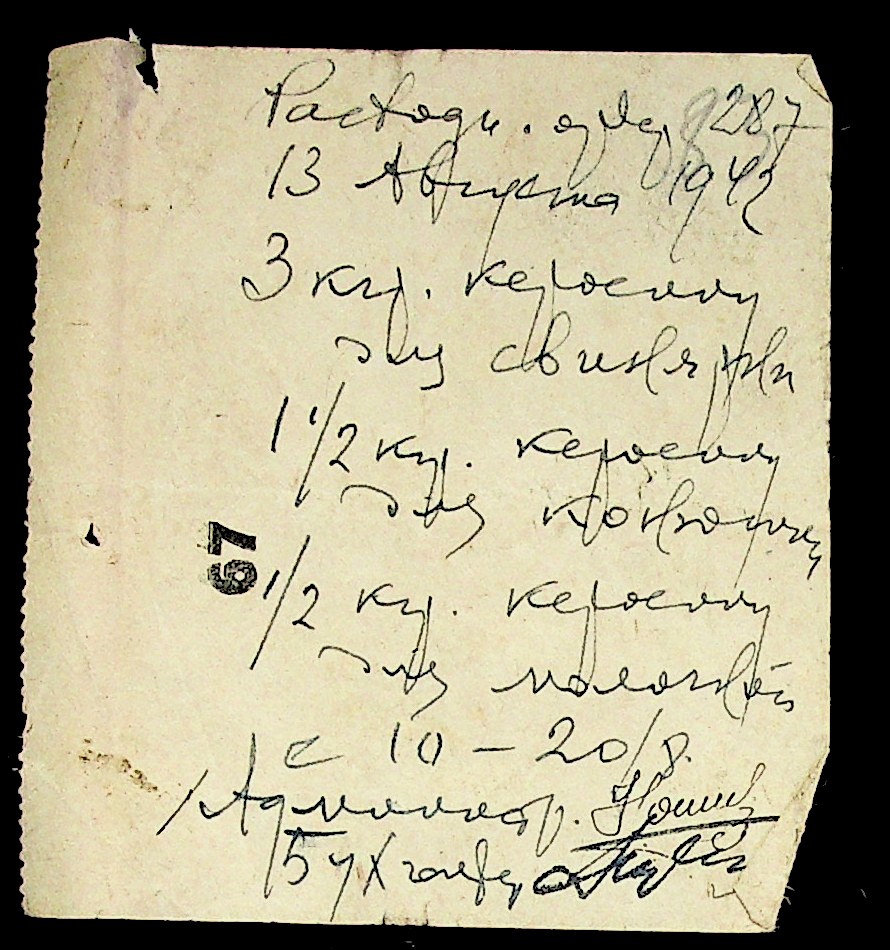 Расходн. орде, 287
13 Августа 1942
3 кгр. керосину
для свинярни
1 1/2 кгр. керосину
для конюшни
67
1/2 кгр. керосину
для молочной
с 10 - 20/8.
Администр.